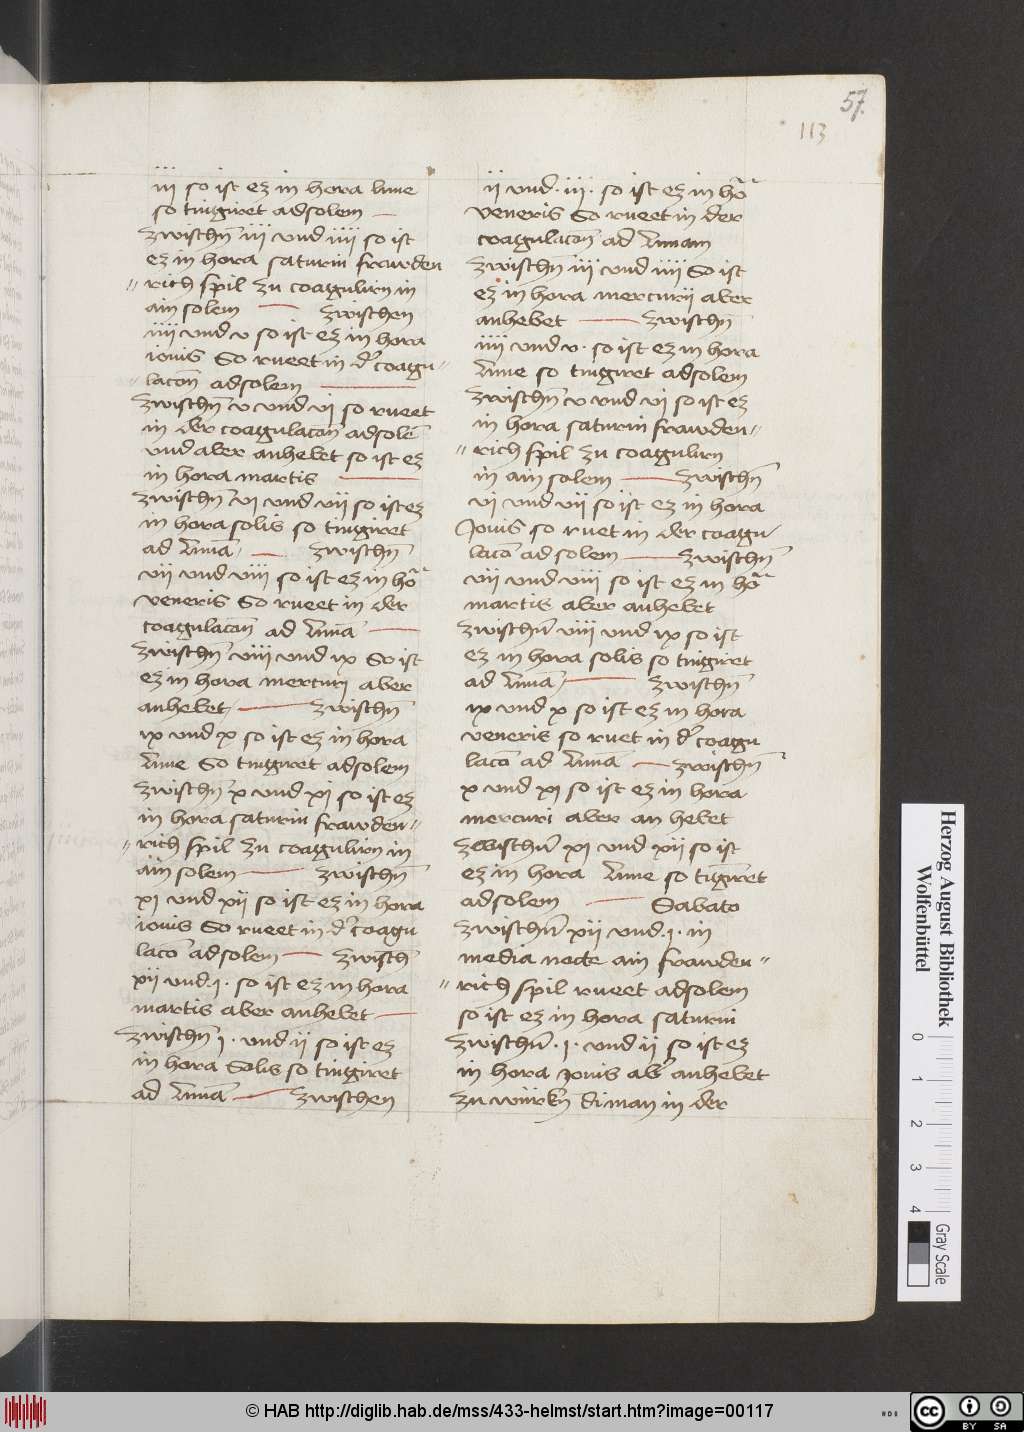 57.
113
iii so ist ez in hora lune
so tingiret ad solem
zwischn̄ iii vnd iiii so ist
ez in hora saturni frawden
rich spil zu coagulirn in
ain solem zwischen
iiii vnd v so ist ez in hora
iouis So rueet in d' coagu
lacon̄ ad solem
zwischn̄ v vnd vi so rueet
in der coagulacon̄ ad solē
vnd aber anhebet so ist ez
in hora martis
zwischn̄ vi vnd vii so ist ez
in hora solis so tingiret
ad lunā zwischn̄
vii vnd viii so ist ez in hoͣ
veneris So rueet in der
coagulacan̄ ad lunā
zwischn̄ viii vnd ix So ist
ez in hora mercurj aber
anhebet zwischn̄
ix vnd x so ist ez in hora
lune So tingiret ad solem
zwischn̄ x vnd xi so ist ez
in hora saturni frawden
rich spil zu coagulirn in
ain solem zwischn̄
xi vnd xii so ist ez in hora
iouis So rueet in d' coagu
lacō ad solem zwiscħ
xii vnd .i. so ist ez in hora
martis aber anhebet
zwischn̄ i. vnd ii so ist ez
in hora Solis so tingiret
ad lunā zwischen
ii vnd .iii. so ist ez in hoͣ
veneris So rueet in der
coagulacon̄ ad lunam
zwischn̄ iii vnd iiii So ist
ez in hora mercurii aber
anhebet zwischn̄
iiii vnd v. so ist ez in hora
lune so tingiret ad solem
zwischn̄ v vnd vi so ist ez
in hora saturni frawden
rich spil zu coagulirn
in ain solem zwischn̄
vi vnd vii so ist ez in hora
Jouis so ruet in der coagu
lacō ad solem zwischn̄
vii vnd viii so ist ez in hoͣ
martis aber anhebet
zwischn̄ viii vnd ix so ist
ez in hora solis so tingiret
ad lunā zwischn̄
ix vnd x so ist ez in hora
veneris so ruet in d' coagu
lacō ad lunā zwischn̄
x vnd xi so ist ez in hora
mercuri aber an hebet
zwischn̄ xi vnd xii so ist
ez in hora lune so tīgiret
ad solem Sabato
zwischn̄ xii vnd .i. in
media nocte ain frawden
rich spil rueet ad solem
so ist ez in hora saturni
zwischn̄ .i. vnd ii so ist ez
in hora iouis ab' anhebet
zu würkn̄ di man in der
Herzog August Bibliothek
Wolfenbüttel
0 1 2 3 4
Gray Scale
© HAB http://diglib.hab.de/mss/433-helmst/start.htm?image=00117
HAB
cc BY SA